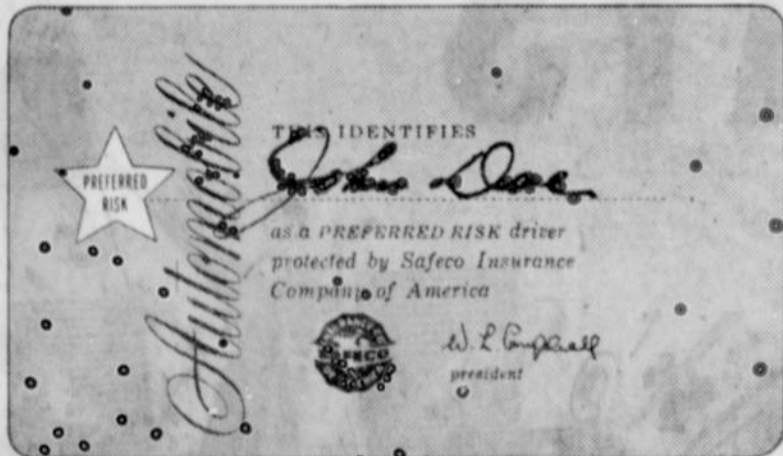 PREFERRED
RISK
Automobile
THIS IDENTIFIES
John Doe
as a PREFERRED RISK driver
protected by Safeco Insurance
Company of America
SAFECO
W. L. Campbell
president